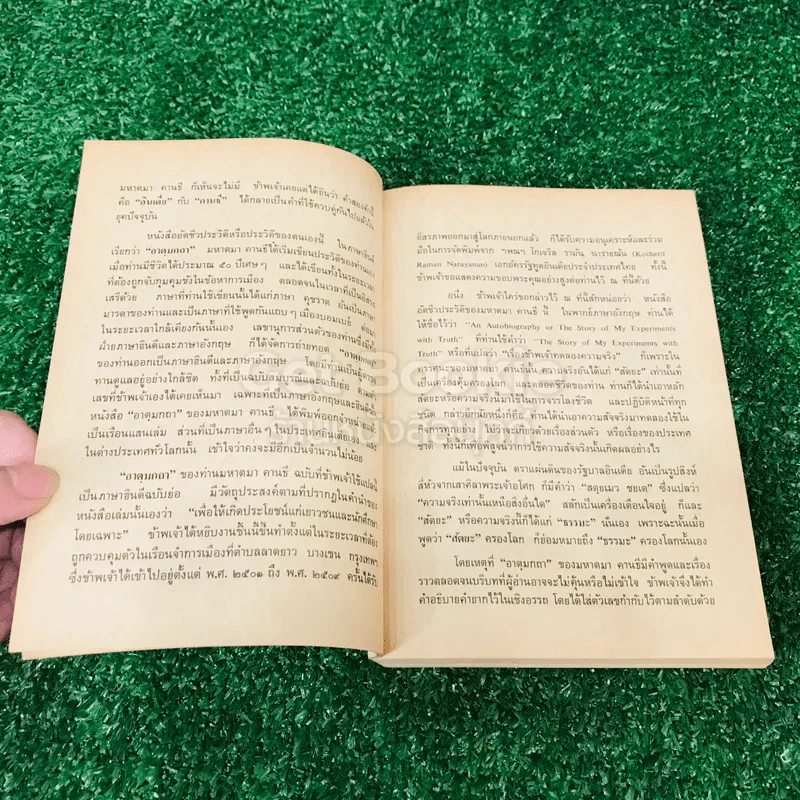 มหาตมา คานธี ก็เห็นจะไม่มี ข้าพเจ้าเคยแต่ได้ยินว่า คำสองคำนี้
คือ "อินเดีย" กับ "คานธี" ได้กลายเป็นคำที่ใช้ควบคู่กันไปแล้วใน
ยุคปัจจุบัน
หนังสืออัตชีวประวัติหรือประวัติของตนเองนี้ ในภาษาฮินดี
เรียกว่า "อาตฺมกถา" มหาตมา คานธีได้เริ่มเขียนประวัติของท่านเอง
เมื่อท่านมีชีวิตได้ประมาณ ๕๐ ปีเศษๆ และได้เขียนทั้งในระยะเวลา
ที่ต้องถูกจับกุมคุมขังในข้อหาการเมือง ตลอดจนในเวลาที่เป็นอิสระ
เสรีด้วย ภาษาที่ท่านใช้เขียนนั้นได้แก่ภาษา คุชราต อันเป็นภาษา
มารดาของท่านและเป็นภาษาที่ใช้พูดกันแถบๆ เมืองบอมเบย์ ต่อมา
ในระยะเวลาใกล้เคียงกันนั้นเอง เลขานุการส่วนตัวของท่านซึ่งมีทั้ง
ฝ่ายภาษาฮินดีและภาษาอังกฤษ ก็ได้จัดการถ่ายทอด "อาตฺมกถา"
ของท่านออกเป็นภาษาฮินดีและภาษาอังกฤษ โดยมีท่านเป็นผู้ตรวจ
ทานดูแลอยู่อย่างใกล้ชิด ทั้งที่เป็นฉบับสมบูรณ์และฉบับย่อ ตาม
เลขที่ข้าพเจ้าเองได้เคยเห็นมา เฉพาะที่เป็นภาษาอังกฤษและฮินดีนั้น
หนังสือ "อาตฺมกถา" ของมหาตมา คานธี ได้พิมพ์ออกจำหน่ายแล้ว
เป็นเรือนแสนเล่ม ส่วนที่เป็นภาษาอื่นๆ ในประเทศอินเดียเอง
ในต่างประเทศทั่วโลกนั้น เข้าใจว่าคงจะมีอีกเป็นจำนวนไม่น้อย
"อาตฺมกถา" ของท่านมหาตมา คานธี ฉบับที่ข้าพเจ้าใช้แปลนี้
เป็นภาษาฮินดีฉบับย่อ มีวัตถุประสงค์ตามที่ปรากฏในคำนำของ
หนังสือเล่มนั้นเองว่า "เพื่อให้เกิดประโยชน์แก่เยาวชนและนักศึกษา
โดยเฉพาะ" ข้าพเจ้าได้หยิบงานชิ้นนี้ขึ้นทำตั้งแต่ในระยะเวลาที่ต้อง
ถูกควบคุมตัวในเรือนจำการเมืองที่ตำบลลาดยาว บางเขน กรุงเทพฯ
ซึ่งข้าพเจ้าได้เข้าไปอยู่ตั้งแต่ พ.ศ. ๒๕๐๑ ถึง พ.ศ. ๒๕๐๙ ครั้นได้รับ
อิสรภาพออกมาสู่โลกภายนอกแล้ว ก็ได้รับความอนุเคราะห์และร่วม
มือในการจัดพิมพ์จาก "พณฯ โกเจริล รามัน นารายณัน (Kocheril
Raman Narayanan) เอกอัครรัฐทูตอินเดียประจำประเทศไทย ทั้งนี้
ข้าพเจ้าขอแสดงความขอบพระคุณอย่างสูงต่อท่านไว้ ณ ที่นี้ด้วย
อนึ่ง ข้าพเจ้าใคร่ขอกล่าวไว้ ณ ที่นี้สักหน่อยว่า หนังสือ
อัตชีวประวัติของมหาตมา คานธี นี้ ในพากย์ภาษาอังกฤษ ท่านได้
ให้ชื่อไว้ว่า "An Autobiography or The Story of My Experiments
with Truth" ที่ท่านใช้คำว่า "The Story of My Experiments with
Truth" หรือที่แปลว่า "เรื่องข้าพเจ้าทดลองความจริง" ก็เพราะใน
ทรรศนะของมหาตมา คานธีนั้น ความจริงอันได้แก่ "สัตยะ" เท่านั้นที่
เป็นสิ่งคุ้มครองโลก และตลอดชีวิตของท่าน ท่านก็ได้นำเอาหลัก
สัตยะหรือความจริงนี้มาใช้ในการจรรโลงชีวิต และปฏิบัติหน้าที่ที่
ทุกชนิด กล่าวอีกนัยหนึ่งก็คือ ท่านได้นำเอาความสัจจริงมาทดลองใช้ใน
กิจการทุกอย่าง ไม่ว่าจะเกี่ยวด้วยเรื่องส่วนตัว หรือเรื่องของประเทศ
ชาติ ทั้งนี้ก็เพื่อพิสูจน์ว่าการใช้ความสัจจริงนั้นเกิดผลอย่างไร
แม้ในปัจจุบัน ตราแผ่นดินของรัฐบาลอินเดีย อันเป็นรูปสิงห์
สี่หัวจากเสาศิลาพระเจ้าอโศก ก็มีคำว่า "สตฺยเมว ชยเต" ซึ่งแปลว่า
"ความจริงเท่านั้นเหนือสิ่งอื่นใด" สลักเป็นเครื่องเตือนใจอยู่ ก็และ
"สัตยะ" หรือความจริงนี้ก็ได้แก่ "ธรรมะ" นั่นเอง เพราะฉะนั้นเมื่อ
พูดว่า "สัตยะ" ครองโลก ก็ย่อมหมายถึง "ธรรมะ" ครองโลกนั่นเอง
โดยเหตุที่ "อาตฺมกถา" ของมหาตมา คานธีมีคำพูดและเรื่อง
ราวตลอดจนบริบทที่ผู้อ่านอาจจะไม่คุ้นหรือไม่เข้าใจ ข้าพเจ้าจึงได้ทำ
คำอธิบายคำยากไว้ในเชิงอรรถ โดยได้ใส่ตัวเลขกำกับไว้ตามลำดับด้วย